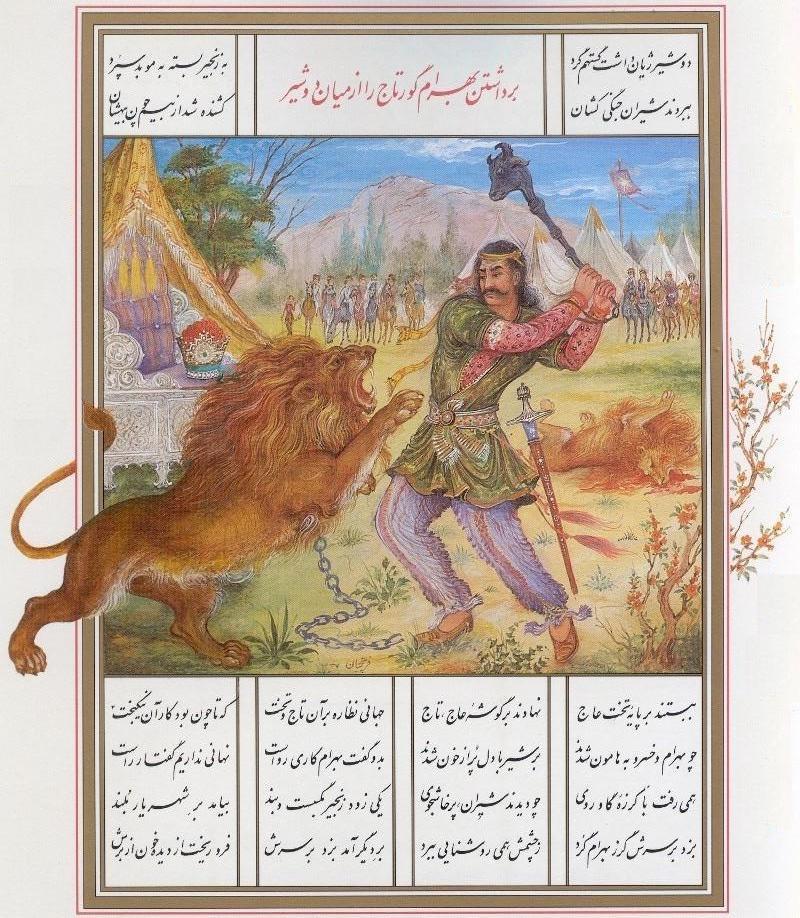 دو شیر ژیان داشت گستهم گرد به زنجیر بسته به موبد سپرد
ببردند شیران جنگی کشان کشنده شد از بیم چون بیهشان
برداشتن بهرام گور تاج را از میان دو شیر
ببستند بر پایه تخت عاج نهادند بر گوشهٔ عاج، تاج جهانی نظاره بر آن تاج و تخت که تا چون بود کار آن نیکبخت
چو بهرام و خسرو به هامون شدند بر شیر با دل پُر از خون شدند بدو گفت بهرام کاری رواست نهانی نداریم گفتار راست
همی رفت با گرزهٔ گاو روی چو دیدند شیران پرخاشجوی یکی زود زنجیر بگسست و بند بیامد بر شهریار بلند
بزد بر سرش گرز بهرام گرد ز چشمش همی روشنایی ببرد بر دیگر آمد بزد بر سرش فرو ریخت از دیده خون از برش